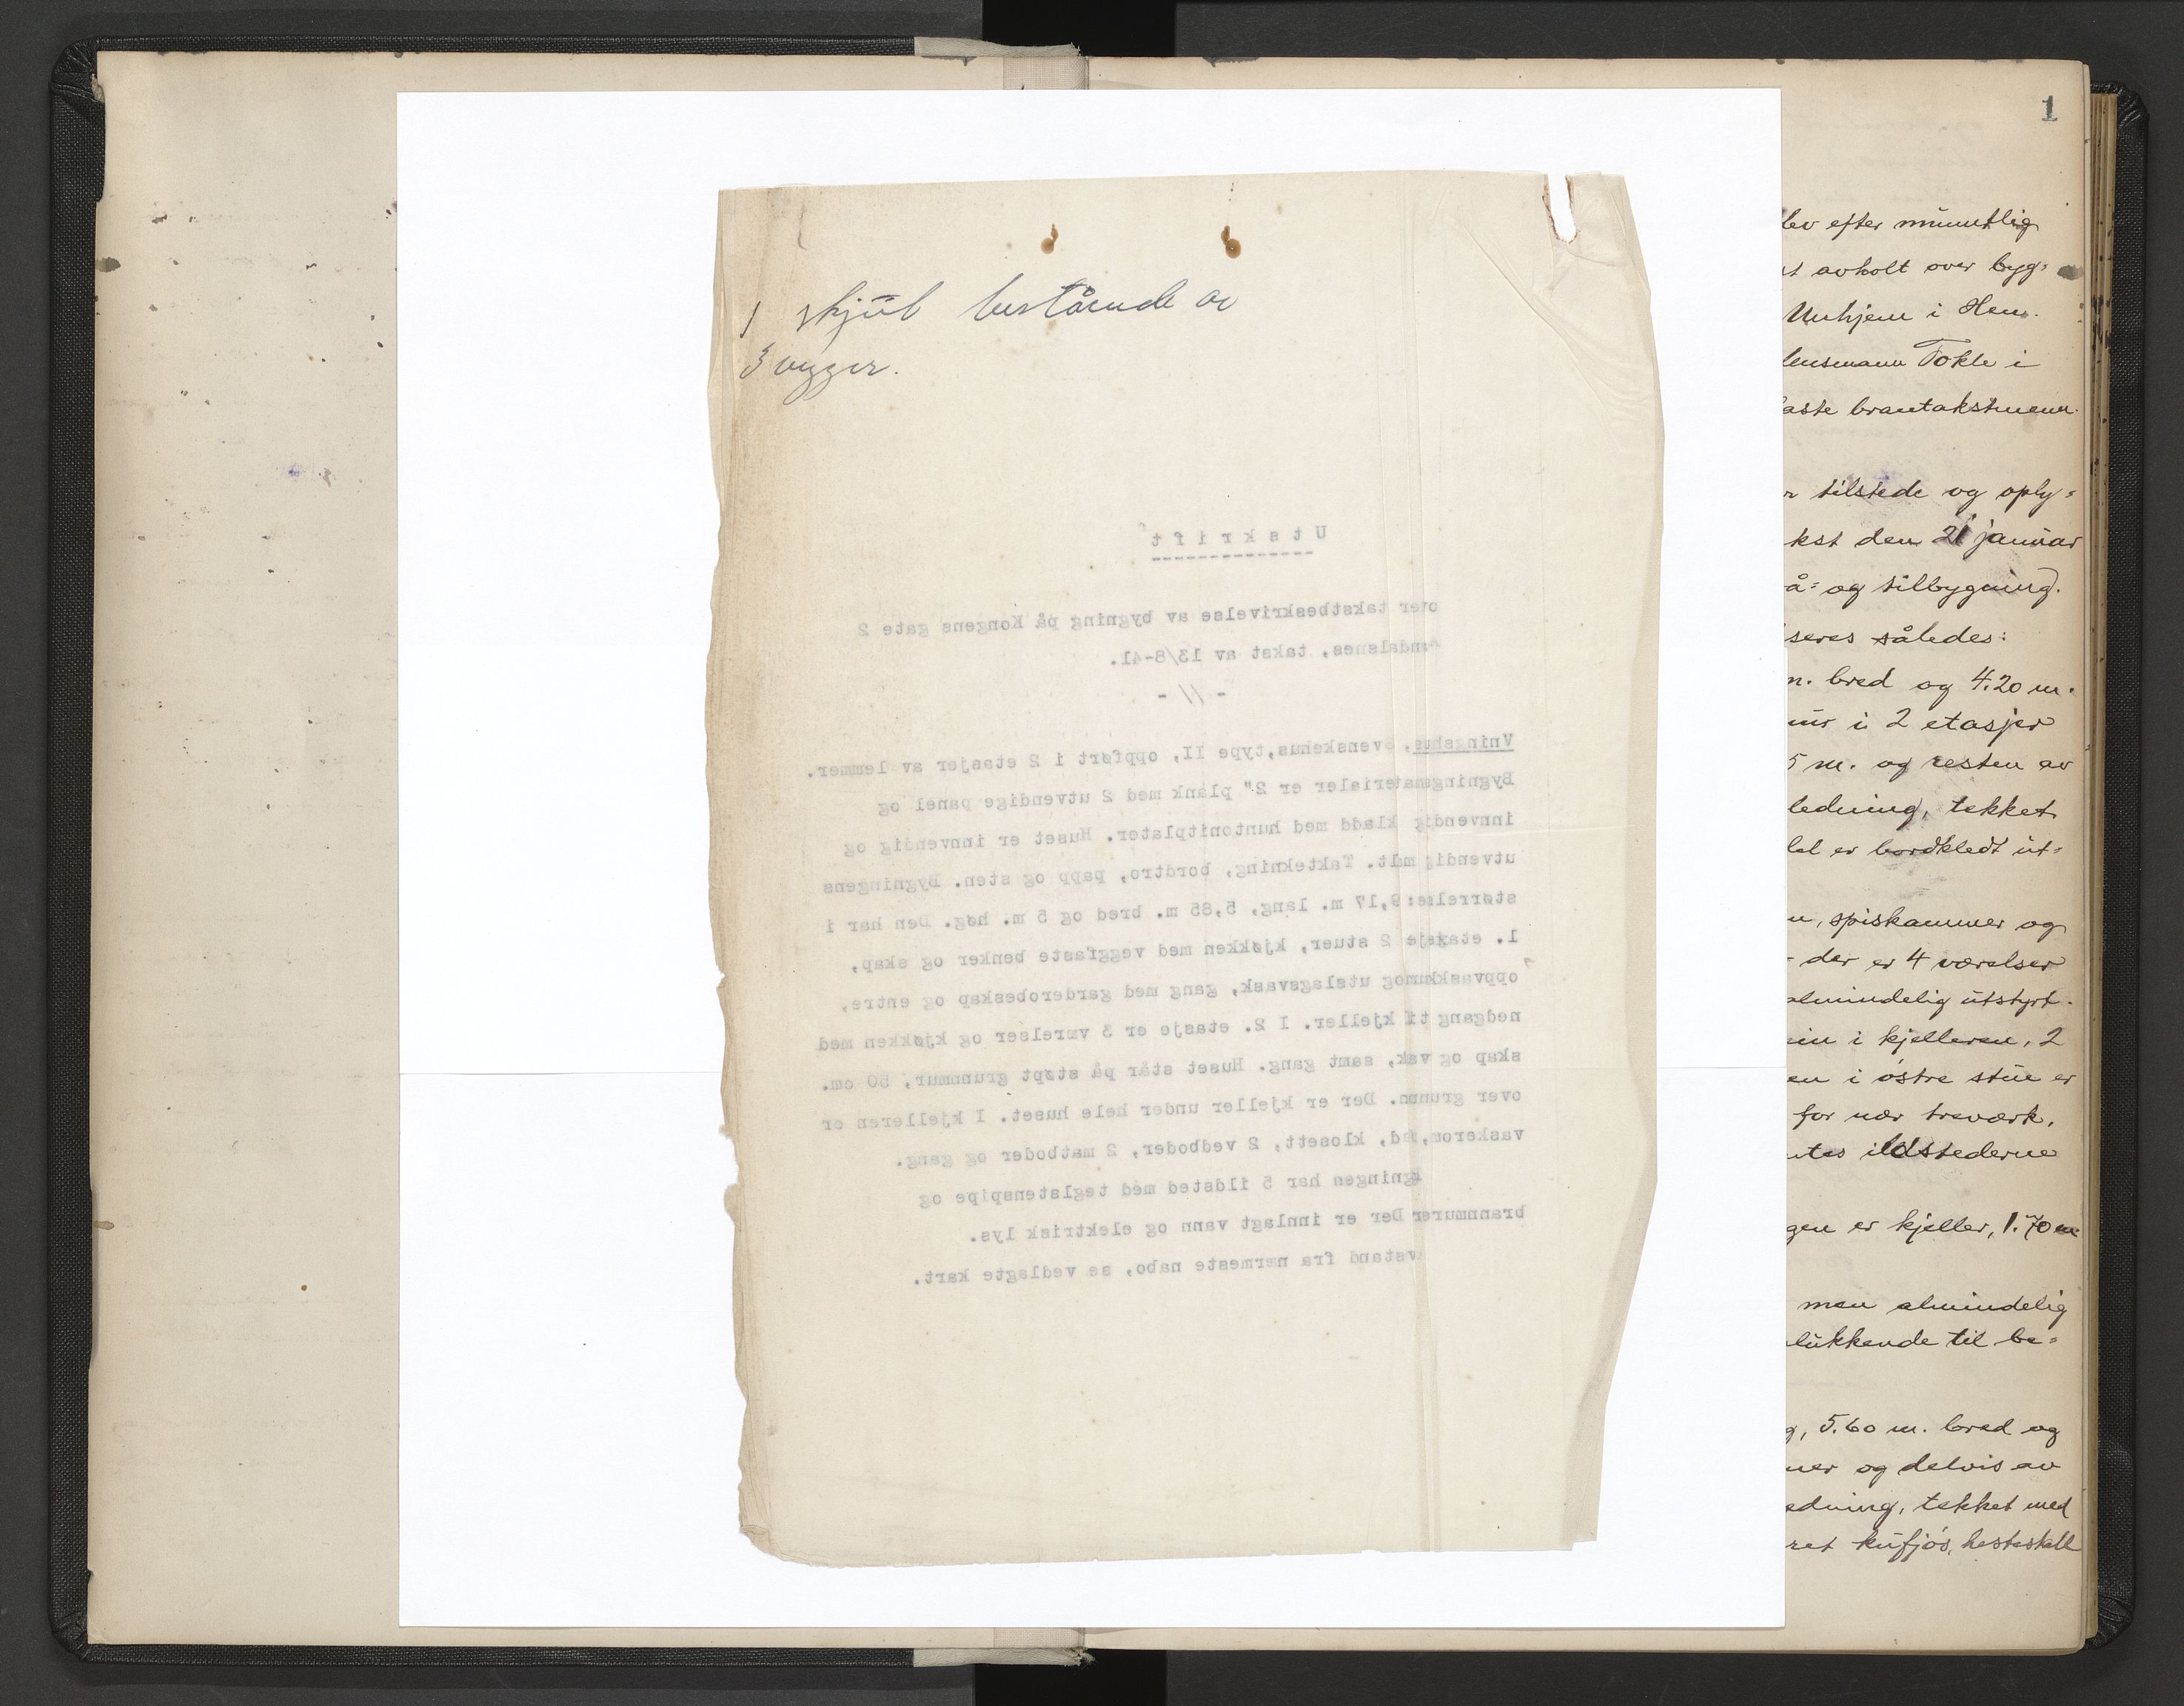 1 skjul bestående av
3 vegger.
Utskrift
over takstbeskrivelse av bygning på Kongens gate 2
Åndalsnes, takst av 13/8-41.
- // -
Vningshus, Svenskehus, type II, oppført i 2 etasjer av lemmer.
Bygningsmaterialer er 2" plank med 2 utvendige panel og
innvendig kladd med huntonitplater. Huset er innvendig og
utvendig mdlt. Taktekning, bordtro, papp og sten. Bygningens
størrelse: 9,17 m. lang, 5,85 m. bred og 5 m. høg. Den har i
1. etasje 2 stuer, kjøkken med veggfaste benker og skap,
oppvaskkum og utslagsvask, gang med garderobeskap og entre,
nedgang til kjeller. I 2. etasje er 3 værelser og kjøkken med
skap og vak, samt gang. Huset står på støpt grunnmur, 50 cm.
over grunnn. Der er kjeller under hele huset. I kjelleren er
vaskerom, bad, klosett, 2 vedboder, 2 matboder og gang.
gningen har 5 ildsted med teglstenspipe og
brannmurer Der er innlagt vann og elektrisk lys.
vstand fra nærmeste nabo, se vedlagte kart.
1
lev efter mundtlig
st avholt over byg=
Unhjem i Hen.
lensmann Tokle i
faste brantakstmenn.
r tilstede og oply=
kst den 21 januar
å= og tilbygning).
seres således:
m. bred og 4.20 m.
ur i 2 etasjer
5 m. og resten av
ledning, tekket
lel er bordkledt ut=
n, spiskammer og
- der er 4 værelser
almindelig utstyrt.
in i kjelleren, 2
en i østre stue er
for nær treværk,
ntes ildstederne
gen er kjeller, 1.70 m
men almindelig
lukkende til be=
g, 5.60 m. bred og
mer og delvis av
edning, tekket med
ret kufjøs, hestestall